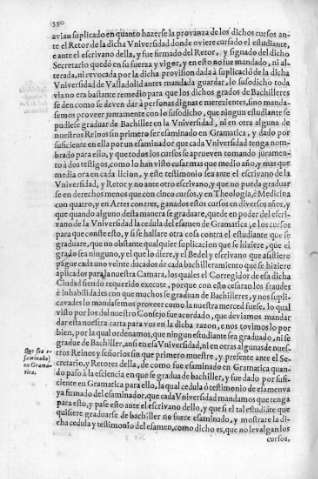 390
avian suplicado en quanto hazerse la provanza de los dichos cursos an-
te el Retor de la dicha Vniversidad donde oviere cursado el estudiante,
e ante el escrivano della, y fue firmado del Retor, y signado del dicho
Secretario quedò en su fuerza y vigor, y en esto no fue mandado, ni al-
terada, ni revocada por la dicha provision dada à suplicaciò de la dicha
Vniversidad de Valladolid antes mandada guardar, lo susodicho toda
via no era bastante remedio para que los dichos grados de Bachilleres
se den como se deven dar à personas dignas e merezientes, sino manda-
semos proveer juntamente con lo susodicho, que ningun estudiante se
pudiese graduar de Bachiller en la Vniversidad, ni en otra alguna de
nuestros Reinos sin primero ser esaminado en Gramatica, y dado por
suficiente en ella por un esaminador que cada Vniversidad tenga nom-
brado para ello, y que todos los cursos se aprueven tomando juramen-
to à dos testigos, como lo han visto cursar mas que medio año, y mas que
media ora en cada licion, y este testimonio sea ante el escrivano de la
Vniversidad, y Retor y no ante otro escrivano, y que no pueda graduar
se en derechos menos que con cinco cursos, y en Theologia, è Medicina
con quatro, y en Artes con tres, ganados estos cursos en diversos años, y
que quando alguno desta manera se graduare, quede en poder del escri-
vano de la Vniversidad la cedula del esamen de Gramatica, e los cursos
para que conste esto, y si se hallare otra cosa contra el estudiante que se
graduare, que no obstante qualquier suplicacion que se hiziere, que el
grado sea ninguno, y el que lo diere, y el Bedel y escrivano que asistiere
pague cada uno veinte ducados de cada bachilleramiento que se hiziere
aplicados para la nuestra Camara, los quales el Corregidor de esa dicha
Ciudad siendo requerido execute, porque con esto cesaran los fraudes
è inhabilidades con que muchos se graduan de Bachilleres, y nos supli-
cavades lo mandasemos proveer como la nuestra merced fuese. lo qual
visto por los del nuestro Consejo fue acordado, que deviamos mandar
dar esta nuestra carta para vos en la dicha razon, e nos tovimos lo por
bien, por la qual ordenamos, que ningun estudiante sea graduado, ni se
gradue de Bachiller, ansi en esa Vniversidad, ni en otras algunas de nues-
tros Reinos y señorios sin que primero muestre, y presente ante el Se-
cretario, y Retor es della, de como fue esaminado en Gramatica quan-
do pasò à la sciencia en que se gradua de bachiller, y fue dado por sufi-
ciente en Gramatica para ello, la qual cedula ò testimonio de esamen va
ya firmado del esaminador, que cada Vniversidad mandamos que tenga
para esto, y pase esto ante el escrivano dello, y que si tal estudiāte que
quisiere graduarse de bachiller no fuere esaminado, y mostrare la di-
cha cedula y testimonio del esamen, como dicho es, que no le valgan los
cursos,
Que sea e-
saminado
en Grama-
tica.